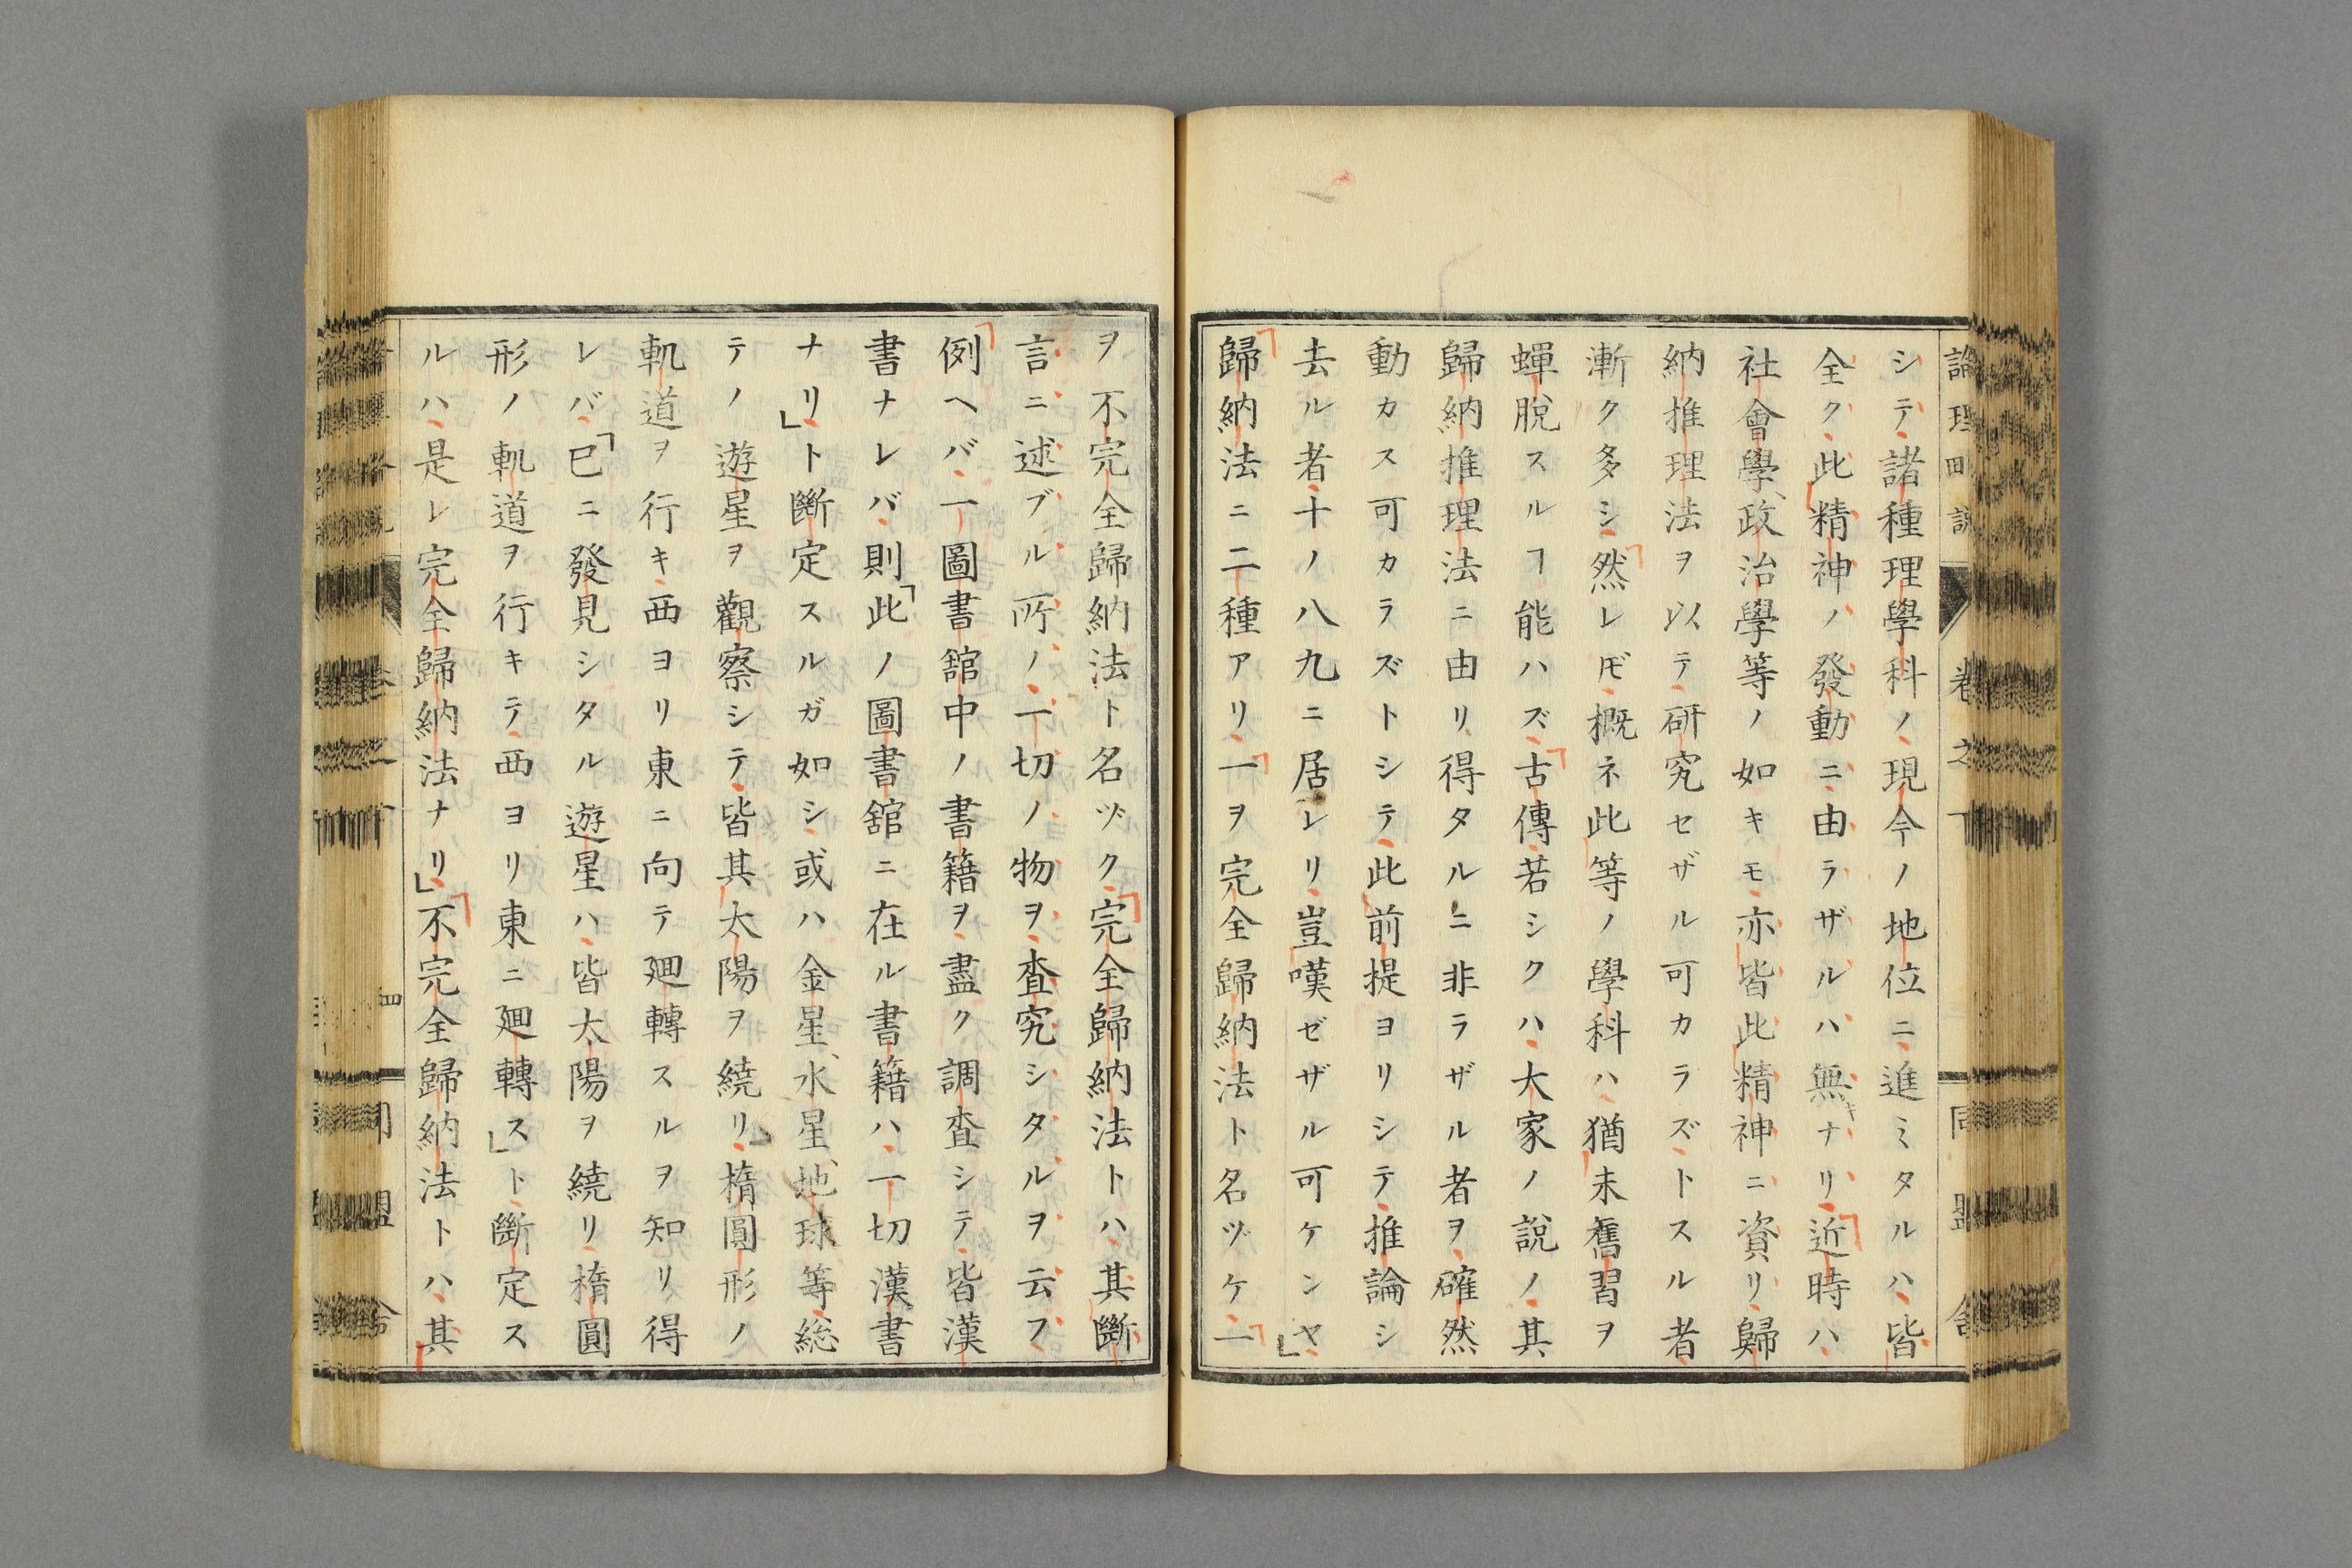 シテ諸種理學科ノ現今ノ地位ニ進ミタルハ皆
全ク此精神ノ發動ニ由ラザルハ無キナリ近時ハ
社會學、政治學等ノ如キモ亦皆此精神ニ資リ歸
納推理法ヲ以テ研究セザル可カラズトスル者
漸ク多シ然レ𪜈概ネ此等ノ學科ハ猶未舊習ヲ
蟬脫スルヿ能ハズ古傳若シクハ大家ノ說ノ其
歸納推理法ニ由リ得タルニ非ラザル者ヲ確然
動カス可カラズトシテ此前提ヨリシテ推論シ
去ル者十ノ八九ニ居レリ豈嘆ゼザル可ケンヤ」
歸納法ニ二種アリ一ヲ完全歸納法ト名ヅケ一
ヲ不完全歸納法ト名ヅク完全歸納法トハ其斷
言ニ述ブル所ノ一切ノ物ヲ查究シタルヲ云フ
例ヘバ一圖書舘中ノ書籍ヲ盡ク調查シテ皆漢
書ナレバ則「此ノ圖書舘ニ在ル書籍ハ一切漢書
ナリ」ト斷定スルガ如シ或ハ金星、水星、地球等総
テノ遊星ヲ觀察シテ皆其太陽ヲ繞リ楕圓形ノ
軌道ヲ行キ西ヨリ東ニ向テ廻轉スルヲ知リ得
レバ「已ニ發見シタル遊星ハ皆太陽ヲ繞リ楕圓
形ノ軌道ヲ行キテ西ヨリ東ニ廻轉ス」ト斷定ス
ルハ是レ完全歸納法ナリ」不完全歸納法トハ其